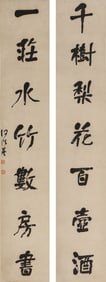 千樹梨花百壺酒
一莊水竹數房書